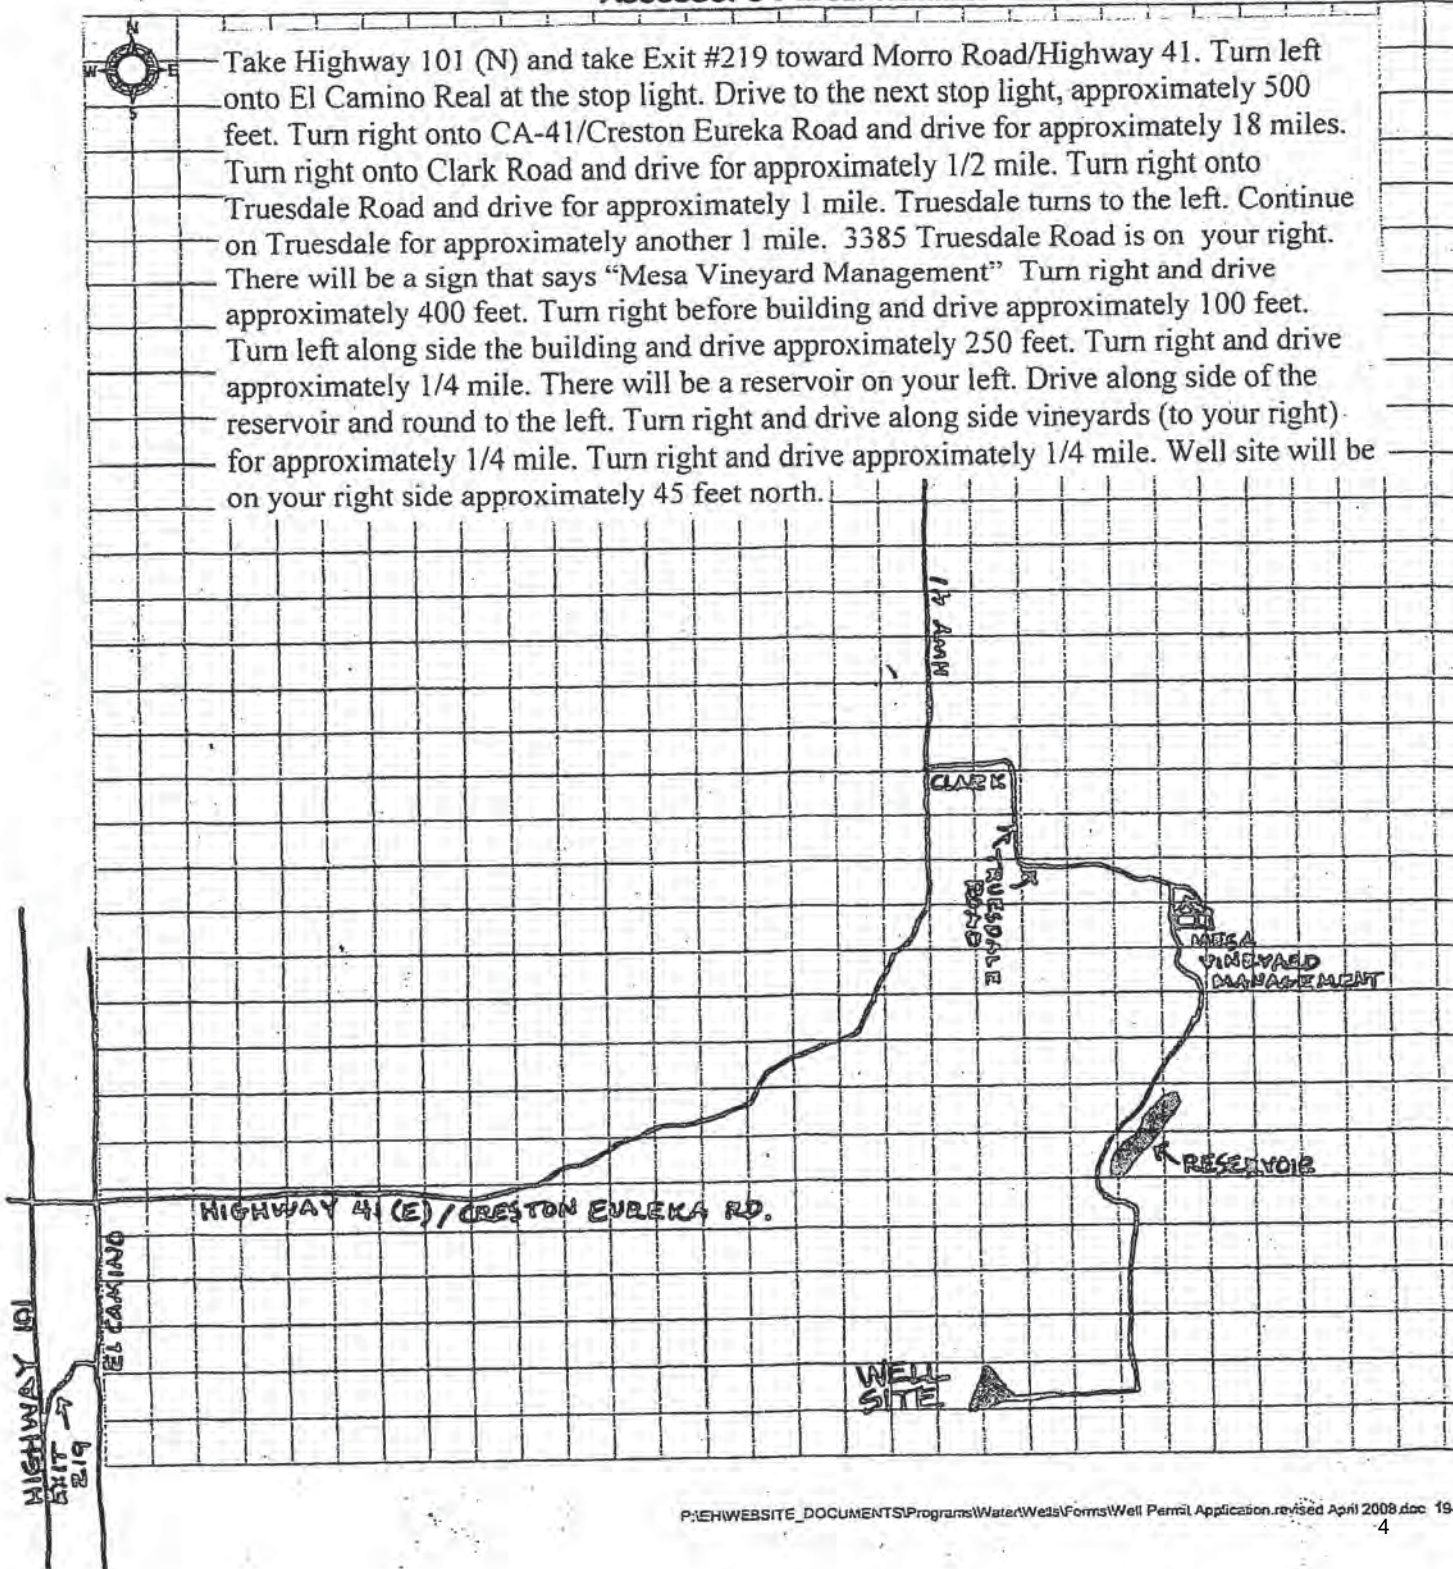 N
W E
S
Take Highway 101 (N) and take Exit #219 toward Morro Road/Highway 41. Turn left
onto El Camino Real at the stop light. Drive to the next stop light, approximately 500
feet. Turn right onto CA-41/Creston Eureka Road and drive for approximately 18 miles.
Turn right onto Clark Road and drive for approximately 1/2 mile. Turn right onto
Truesdale Road and drive for approximately 1 mile. Truesdale turns to the left. Continue
on Truesdale for approximately another 1 mile. 3385 Truesdale Road is on your right.
There will be a sign that says “Mesa Vineyard Management” Turn right and drive
approximately 400 feet. Turn right before building and drive approximately 100 feet.
Turn left along side the building and drive approximately 250 feet. Turn right and drive
approximately 1/4 mile. There will be a reservoir on your left. Drive along side of the
reservoir and round to the left. Turn right and drive along side vineyards (to your right)
for approximately 1/4 mile. Turn right and drive approximately 1/4 mile. Well site will be
on your right side approximately 45 feet north.
HWY 41
CLARK
TRUESDALE
ROAD
MESA
VINEYARD
MANAGEMENT
RESERVOIR
HIGHWAY 41 (E) / CRESTON EUREKA RD.
EL CAMINO
HIGHWAY 101
EXIT
219
WELL
SITE
P:\EH\WEBSITE_DOCUMENTS\Programs\Water\Wells\Forms\Well Permit Application.revised April 2008.doc 19
4